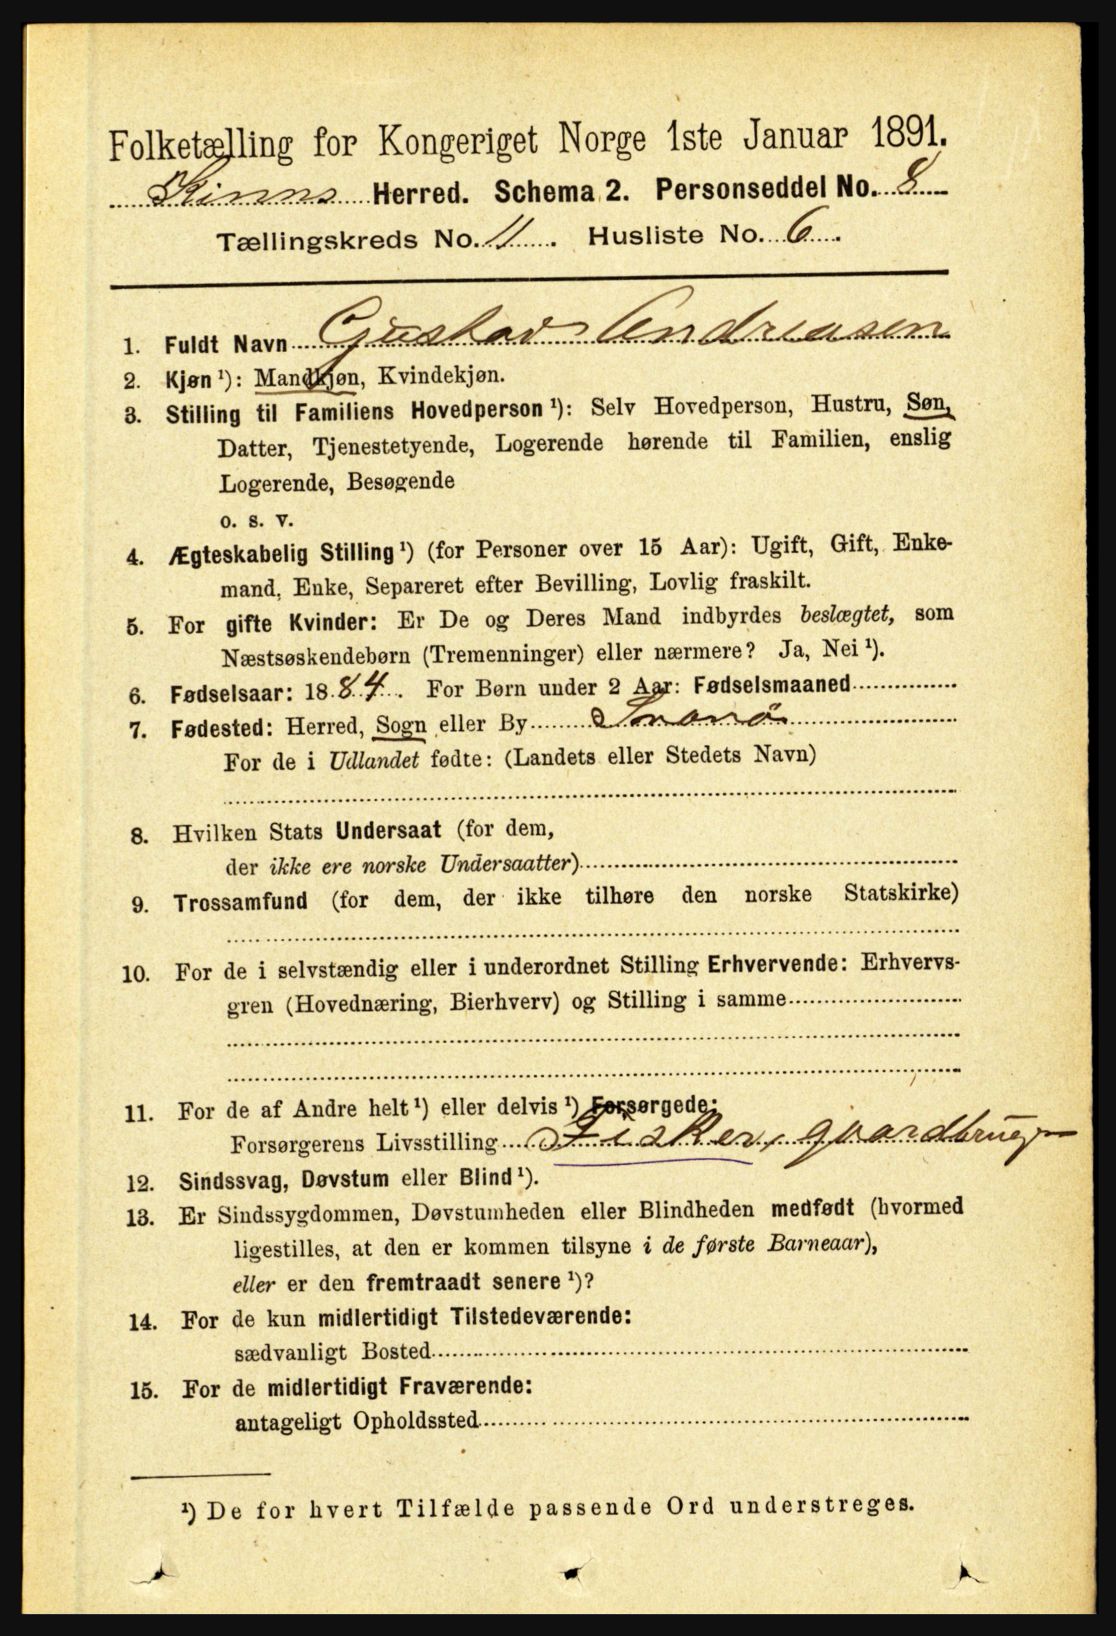 Folketælling for Kongeriget Norge 1ste Januar 1891.
Kinns Herred. Schema 2. Personseddel No. 8
Tællingskreds No. 11. Husliste No. 6.
1. Fuldt Navn Gustav Andreasen
2. Kjøn¹): Mandkjøn, Kvindekjøn.
3. Stilling til Familiens Hovedperson¹): Selv Hovedperson, Hustru, Søn,
Datter, Tjenestetyende, Logerende hørende til Familien, enslig
Logerende, Besøgende
o. s. v.
4. Ægteskabelig Stilling¹) (for Personer over 15 Aar): Ugift, Gift, Enke-
mand, Enke, Separeret efter Bevilling, Lovlig fraskilt.
5. For gifte Kvinder: Er De og Deres Mand indbyrdes beslægtet, som
Næstsøskendebørn (Tremenninger) eller nærmere? Ja, Nei¹).
6. Fødselsaar: 1884. For Børn under 2 Aar: Fødselsmaaned
7. Fødested: Herred, Sogn eller By Svanø
For de i Udlandet fødte: (Landets eller Stedets Navn)
8. Hvilken Stats Undersaat (for dem,
der ikke ere norske Undersaatter)
9. Trossamfund (for dem, der ikke tilhøre den norske Statskirke)
10. For de i selvstændig eller i underordnet Stilling Erhvervende: Erhvervs-
gren (Hovednæring, Bierhverv) og Stilling i samme
11. For de af Andre helt¹) eller delvis¹) Forsørgede:
Forsørgerens Livsstilling Fisker, gaardbruger
12. Sindssvag, Døvstum eller Blind¹).
13. Er Sindssygdommen, Døvstumheden eller Blindheden medfødt (hvormed
ligestilles, at den er kommen tilsyne i de første Barneaar),
eller er den fremtraadt senere¹)?
14. For de kun midlertidigt Tilstedeværende:
sædvanligt Bosted
15. For de midlertidigt Fraværende:
antageligt Opholdssted
¹) De for hvert Tilfælde passende Ord understreges.